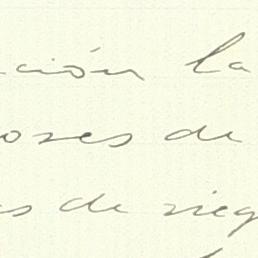 ación la
ores de
as de rieg